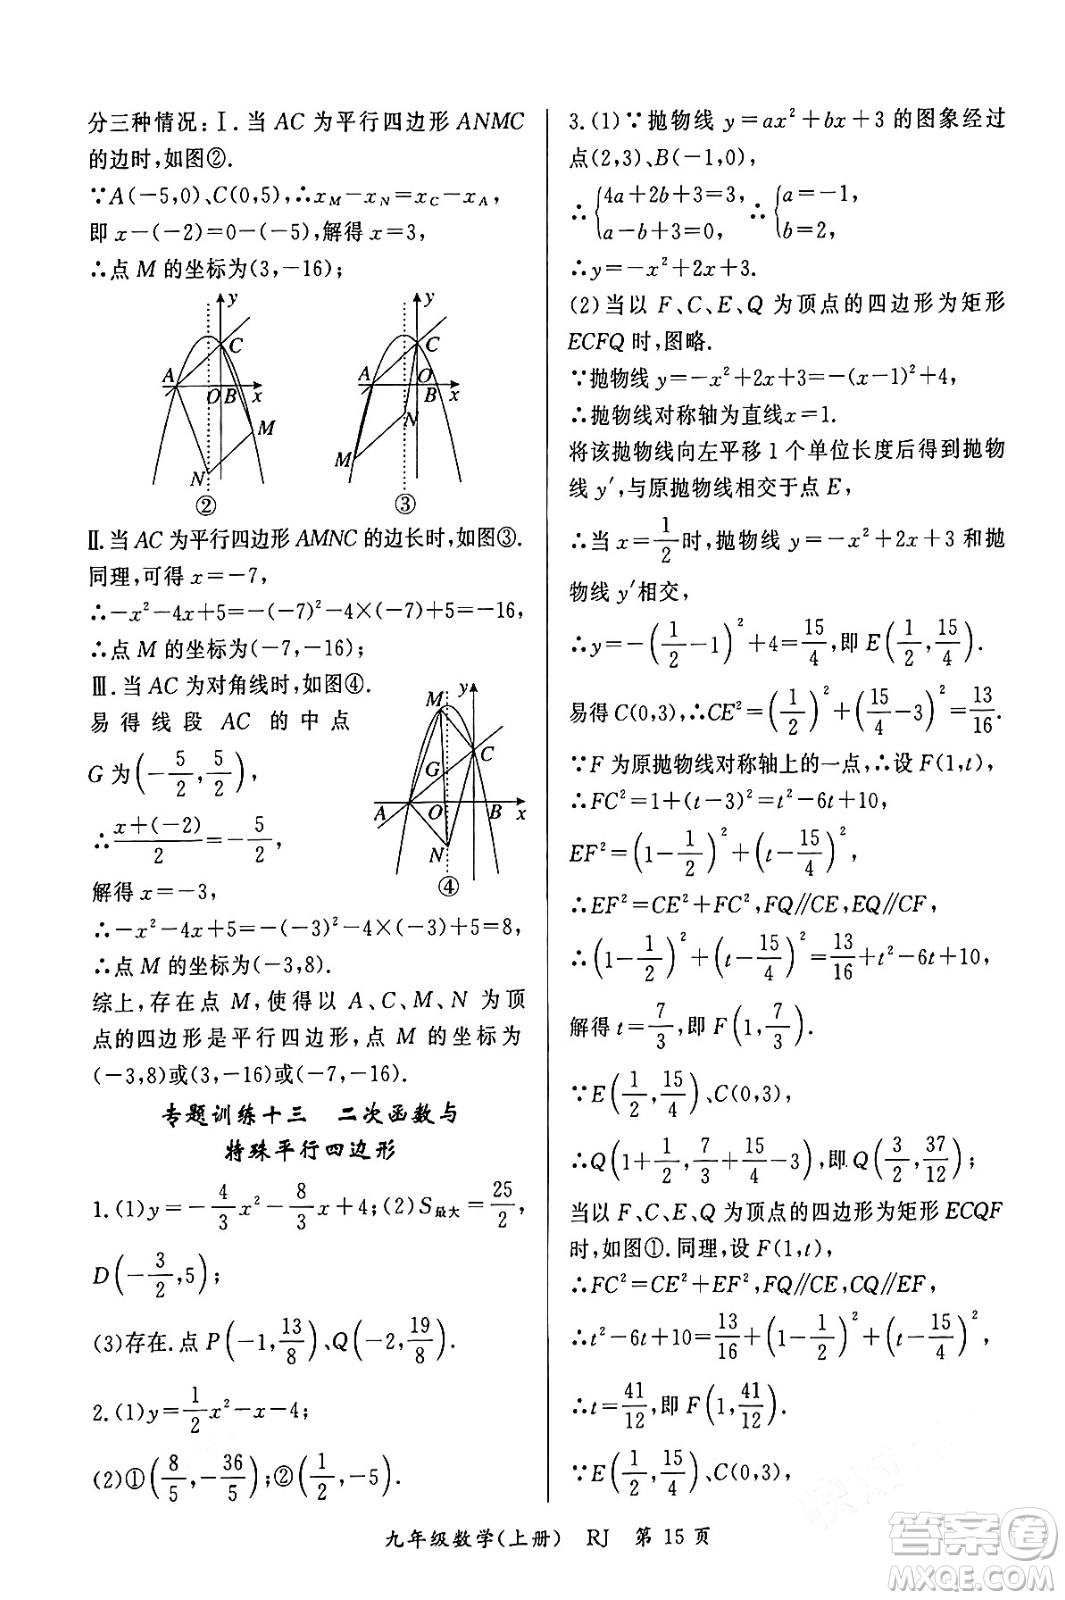 分三种情况:Ⅰ.当 AC 为平行四边形 ANMC
的边时,如图②.
∵A(-5,0)、C(0,5),∴x_M-x_N=x_C-x_A,
即 x-(-2)=0-(-5),解得 x=3,
∴点 M 的坐标为(3,-16);
y
C
A
O
B
x
M
N
②
y
C
A
O
B
x
N
M
③
Ⅱ.当 AC 为平行四边形 AMNC 的边长时,如图③.
同理,可得 x=-7,
∴-x²-4x+5=-(-7)²-4×(-7)+5=-16,
∴点 M 的坐标为(-7,-16);
Ⅲ.当 AC 为对角线时,如图④.
易得线段 AC 的中点
G 为(-5/2,5/2),
∴(x+(-2))/2=-5/2,
解得 x=-3,
y
M
C
G
A
O
B
x
N
④
∴-x²-4x+5=-(-3)²-4×(-3)+5=8,
∴点 M 的坐标为(-3,8).
综上,存在点 M,使得以 A、C、M、N 为顶
点的四边形是平行四边形,点 M 的坐标为
(-3,8)或(3,-16)或(-7,-16).
专题训练十三 二次函数与
特殊平行四边形
1.(1)y=-4/3x²-8/3x+4;(2)S最大=25/2,
D(-3/2,5);
(3)存在.点 P(-1,13/8)、Q(-2,19/8).
2.(1)y=1/2x²-x-4;
(2)①(8/5,-36/5);②(1/2,-5).
3.(1)∵抛物线 y=ax²+bx+3 的图象经过
点(2,3)、B(-1,0),
∴{4a+2b+3=3, a-b+3=0, ∴{a=-1, b=2,
∴y=-x²+2x+3.
(2)当以 F、C、E、Q 为顶点的四边形为矩形
ECFQ 时,图略.
∵抛物线 y=-x²+2x+3=-(x-1)²+4,
∴抛物线对称轴为直线x=1.
将该抛物线向左平移 1 个单位长度后得到抛物
线 y′,与原抛物线相交于点 E,
∴当 x=1/2时,抛物线 y=-x²+2x+3 和抛
物线 y′相交,
∴y=-(1/2-1)²+4=15/4,即 E(1/2,15/4).
易得 C(0,3),∴CE²=(1/2)²+(15/4-3)²=13/16.
∵F 为原抛物线对称轴上的一点,∴设 F(1,t),
∴FC²=1+(t-3)²=t²-6t+10,
EF²=(1-1/2)²+(t-15/4)²,
∴EF²=CE²+FC²,FQ//CE,EQ//CF,
∴(1-1/2)²+(t-15/4)²=13/16+t²-6t+10,
解得 t=7/3,即 F(1,7/3).
∵E(1/2,15/4)、C(0,3),
∴Q(1+1/2,7/3+15/4-3),即 Q(3/2,37/12);
当以 F、C、E、Q 为顶点的四边形为矩形 ECQF
时,如图①.同理,设 F(1,t),
∴FC²=CE²+EF²,FQ//CE,CQ//EF,
∴t²-6t+10=13/16+(1-1/2)²+(t-15/4)²,
∴t=41/12,即 F(1,41/12).
∵E(1/2,15/4)、C(0,3),
九年级数学(上册) RJ 第 15 页
答案卷
MXQE.COM